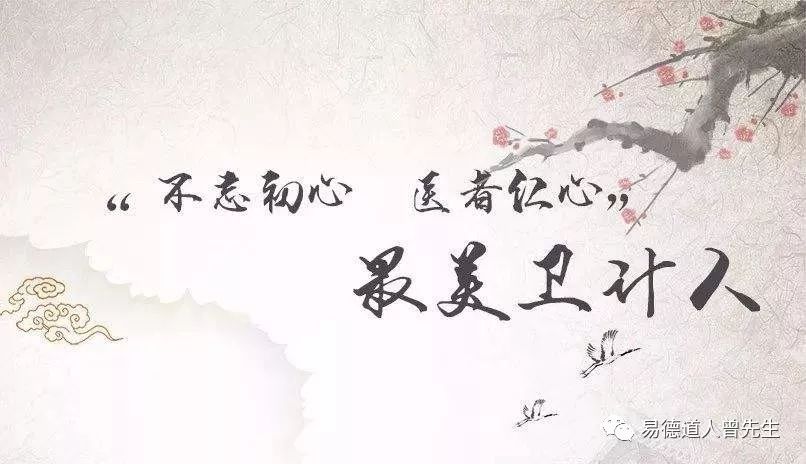 “不忘初心 医者仁心”
最美卫计人
易德道人曾先生